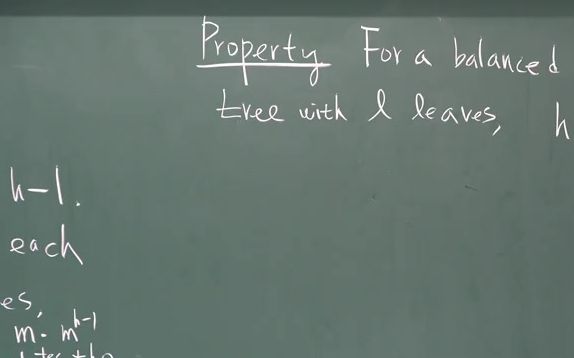 Property For a balanced
tree with l leaves, h
h-1.
each
es,
m. m^{h-1}